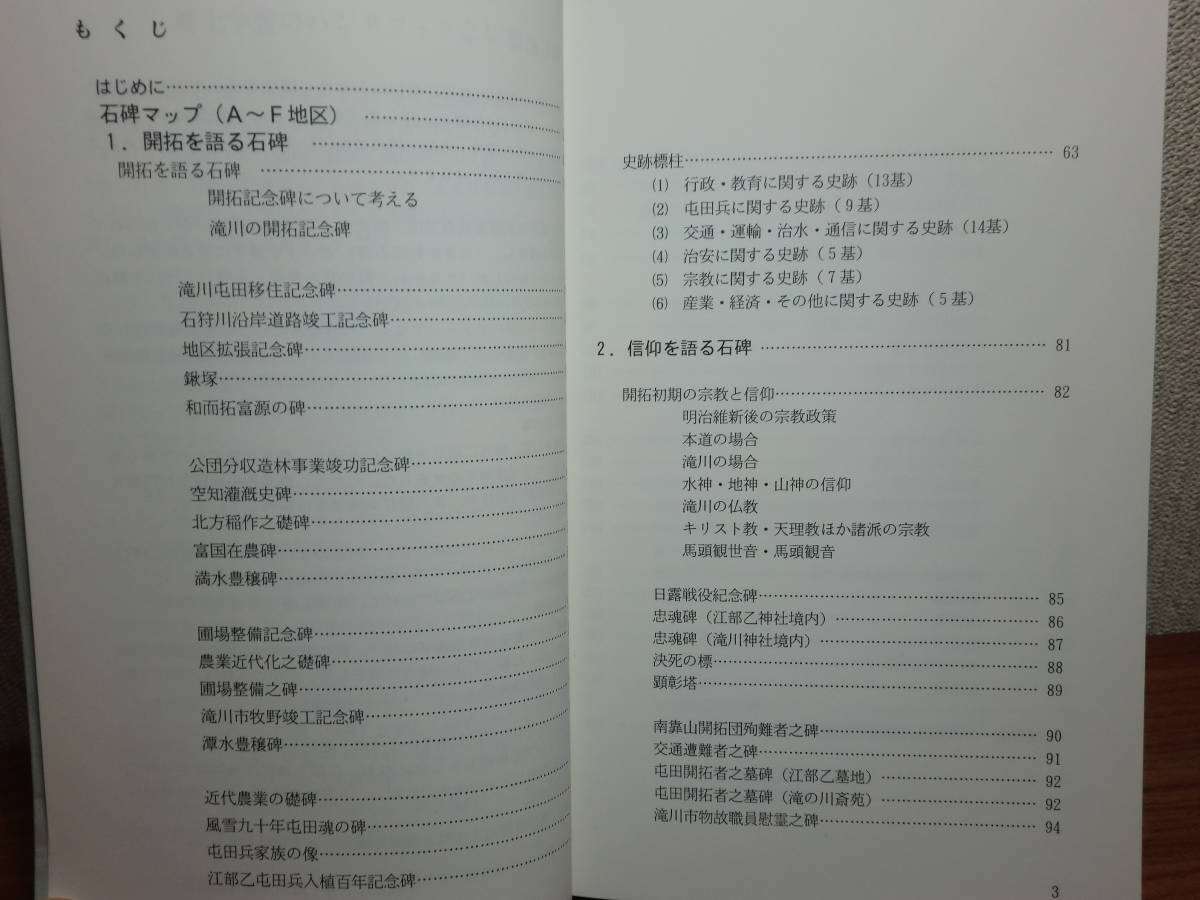 もくじ
はじめに……………………………………
石碑マップ（A～F地区）……………………
1．開拓を語る石碑 ……………………
開拓を語る石碑 ……………………
開拓記念碑について考える
滝川の開拓記念碑
滝川屯田移住記念碑……………………
石狩川沿岸道路竣工記念碑……………………
地区拡張記念碑……………………
鍬塚……………………
和而拓富源の碑……………………
公団分収造林事業竣功記念碑……………………
空知灌漑史碑……………………
北方稲作之礎碑……………………
富国在農碑……………………
満水豊穣碑……………………
圃場整備記念碑……………………
農業近代化之礎碑……………………
圃場整備之碑……………………
滝川市牧野竣工記念碑……………………
潭水豊穣碑……………………
近代農業の礎碑……………………
風雪九十年屯田魂の碑……………………
屯田兵家族の像……………………
江部乙屯田兵入植百年記念碑……………………
史跡標柱…………………………………… 63
(1) 行政・教育に関する史跡（13基）
(2) 屯田兵に関する史跡（9基）
(3) 交通・運輸・治水・通信に関する史跡（14基）
(4) 治安に関する史跡（5基）
(5) 宗教に関する史跡（7基）
(6) 産業・経済・その他に関する史跡（5基）
2．信仰を語る石碑 …………………………………… 81
開拓初期の宗教と信仰…………………………………… 82
明治維新後の宗教政策
本道の場合
滝川の場合
水神・地神・山神の信仰
滝川の仏教
キリスト教・天理教ほか諸派の宗教
馬頭観世音・馬頭観音
日露戦役紀念碑…………………………………… 85
忠魂碑（江部乙神社境内）…………………………… 86
忠魂碑（滝川神社境内）…………………………… 87
決死の標…………………………………… 88
顕彰塔…………………………………… 89
南靠山開拓団殉難者之碑…………………………… 90
交通遭難者之碑…………………………………… 91
屯田開拓者之墓碑（江部乙墓地）…………………… 92
屯田開拓者之墓碑（滝の川斎苑）…………………… 92
滝川市物故職員慰霊之碑…………………………… 94
3